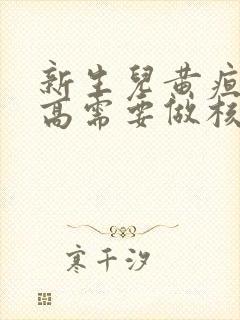 新生儿黄疸
高需要做核
寒千汐